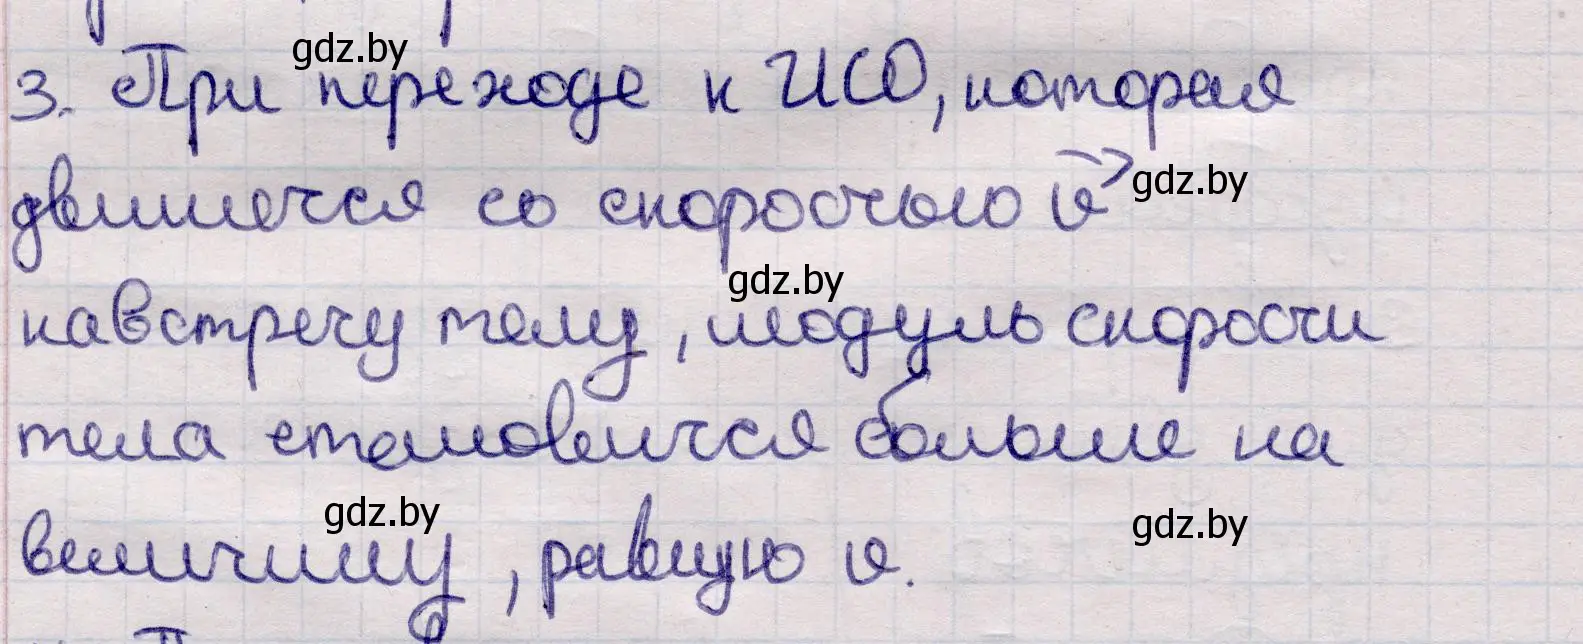 gdz.by
3. При переходе к ИСО, которая
движется со скоростью v⃗
gdz.by
gdz.by
навстречу телу, модуль скорости
тела становится больше на
gdz.by
gdz.by
величину, равную v.